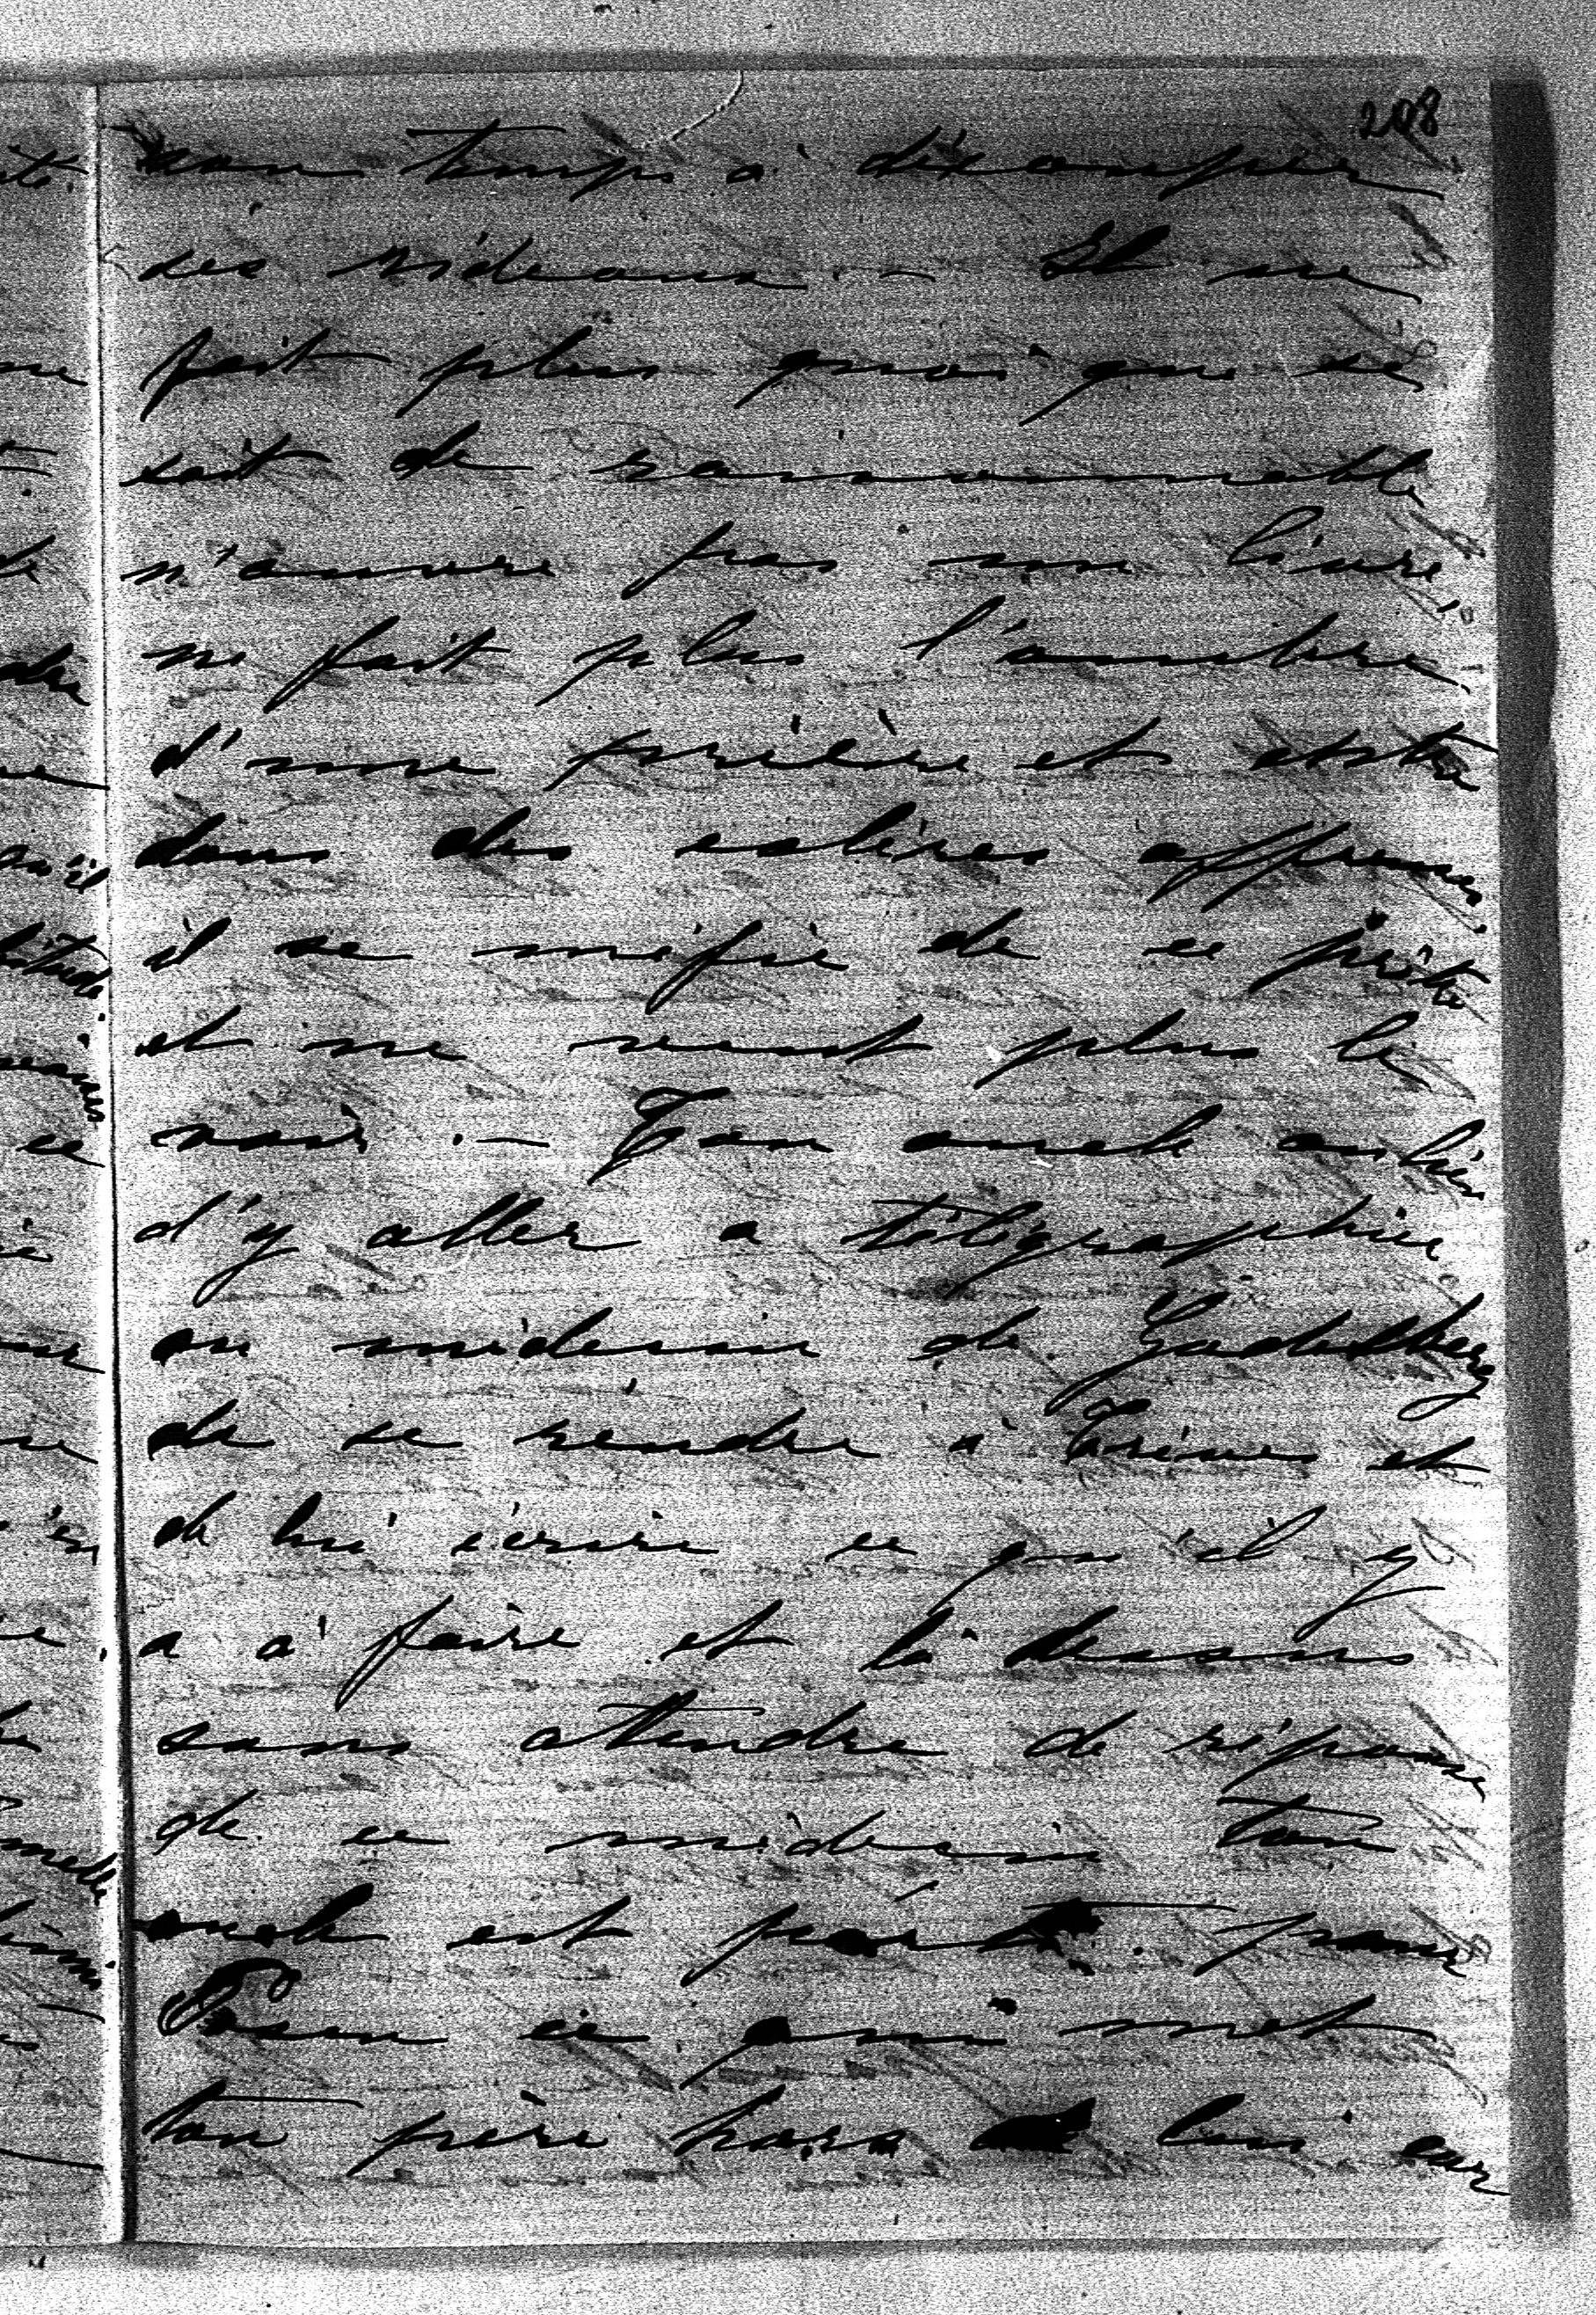 208
son temps à découper
ses rideaux. — Il ne
fait plus quoi que ce
soit de raisonnable
n'ouvre pas un livre
ne fait plus l'ombre
d'une prière et entre
dans des colères affreuses
il se méfie de ce prêtre
et ne veut plus le
voir. — Ton oncle au lieu
d'y aller a télégraphié
au médecin de
de se rendre à et
de lui écrire ce qu'il y
a à faire et là dessus
sans attendre de réponse
de ce médecin ton
oncle est parti pour
Posen ce qui met
ton père hors lui car